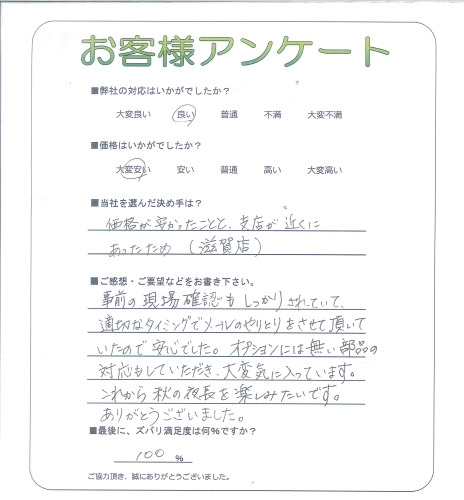 お客様アンケート
■弊社の対応はいかがでしたか？
大変良い 良い 普通 不満 大変不満
■価格はいかがでしたか？
大変安い 安い 普通 高い 大変高い
■当社を選んだ決め手は？
価格が安かったことと、支店が近くに
あったため（滋賀店）
■ご感想・ご要望などをお書き下さい。
事前の現場確認もしっかりされていて、
適切なタイミングでメールのやりとりをさせて頂いて
いたので安心でした。オプションには無い部品の
対応もしていただき、大変気に入っています。
これから秋の夜長を楽しみたいです。
ありがとうございました。
■最後に、ズバリ満足度は何％ですか？
100 ％
ご協力頂き、誠にありがとうございました。